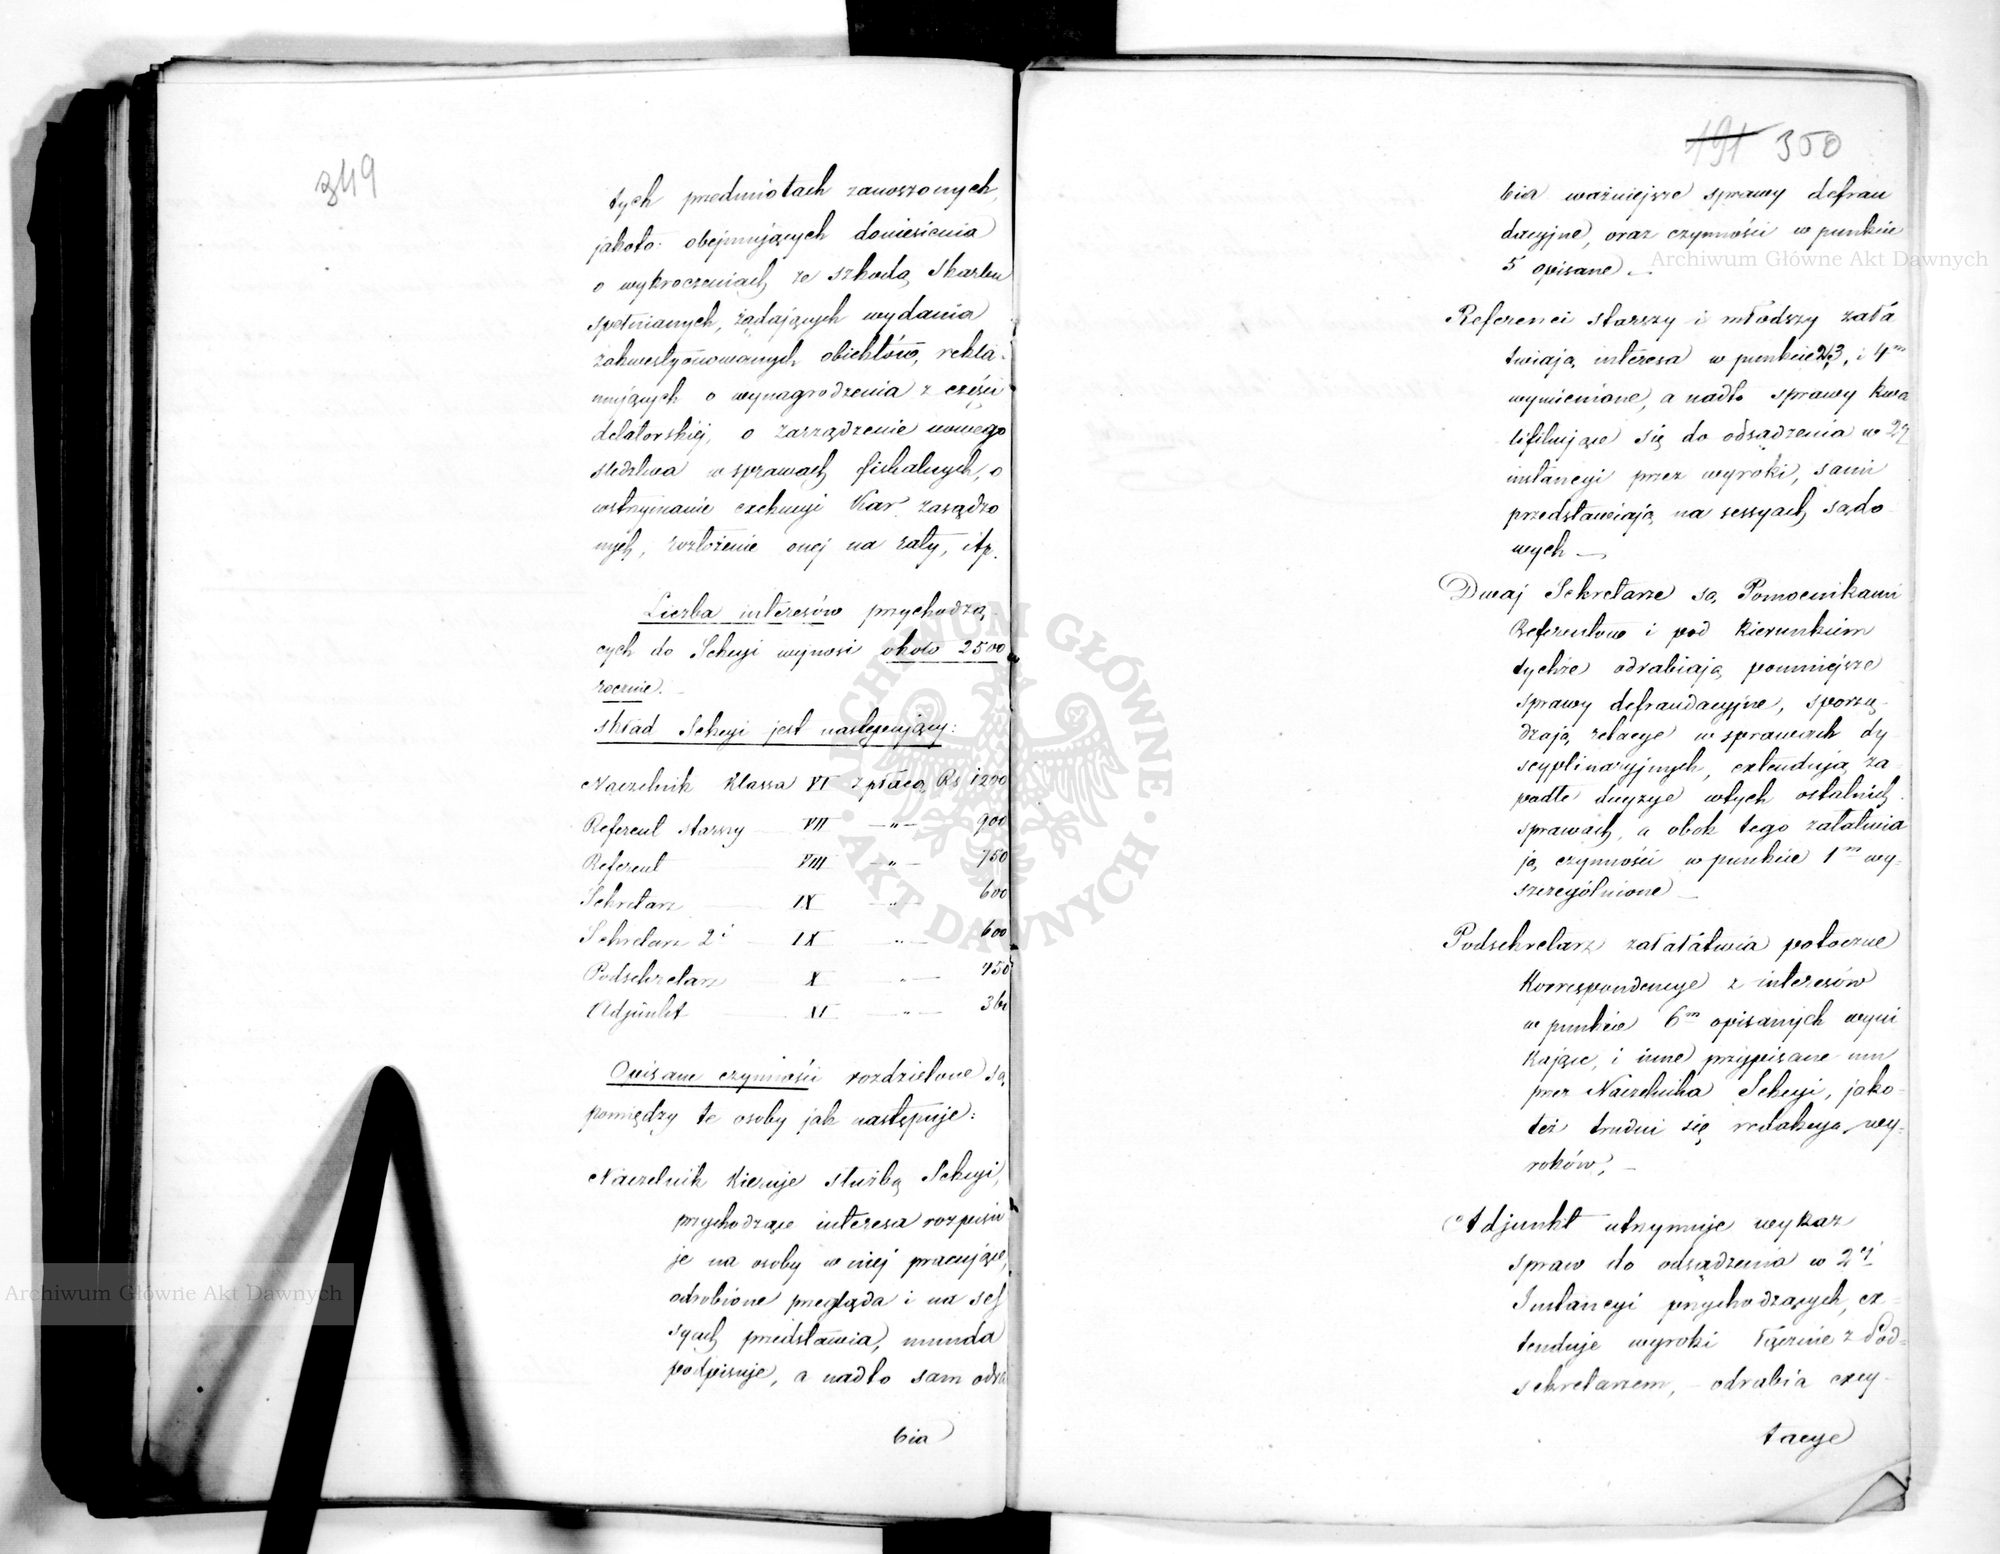 349
tych przedmiotach zanoszonych,
jakoto: obejmujących doniesienia
o wykroczeniach ze szkodą Skarbu
spełnianych, żądających wydania
zakwestyonowanych obiektów, rekla-
mujących o wynagrodzenia z części
delatorskiéj, o zarządzenie nowego
śledztwa w sprawach fiskalnych, o
wstrzymanie exekucyi Kar zasądzo
nych, rozłożenie onej na raty, itp.
Liczba interesów przychodzą-
cych do Sekcyi wynosi około 2500
rocznie. –
Skład Sekcyi jest następujący:
Naczelnik Klassa VI z płacą Rs 1200
Referent starszy — VII —„— 900
Referent — VIII —„— 750
Sekretarz — IX —„— 600
Sekretarz 2i — IX „— 600
Podsekretarz — X „— 450
Adjunkt — XI „— 360
Opisane czynności rozdzielone są
pomiędzy te osoby jak następuje:
Naczelnik Kieruje służbą Sekcyi,
przychodzące interesa rozpisu
je na osoby w niéj pracujące,
odrobione przegląda i na ses
syach przedstawia, munda
podpisuje, a nadto sam odra
bia
191 350
bia ważniejsze sprawy defrau
dacyjne, oraz czynności w punkcie
5 opisane. —
Referenci starszy i młodszy zała
twiają interesa w punkcie 2, 3, i 4m
wymienione, a nadto sprawy kwa
lifikujące się do osądzenia w 2éj
instancyi przez wyroki, sami
przedstawiają na sessyach sądo
wych —
Dwaj Sekretarze są Pomocnikami
Referentów i pod Kierunkiem
tychże odrabiają pomniejsze
sprawy defraudacyjne, sporzą-
dzają relacye w sprawach dy-
scyplinaryjnych, extendują za-
padłe decyzye w tych ostatnich
sprawach, a obok tego załatwia
ją czynności w punkcie 1m wy-
szczególnione —
Podsekretarz załatatwia potoczne
Korrespondencye z interesów
w punkcie 6m opisanych wyni
kające, i inne przypisane mu
przez Naczelnika Sekcyi, jako-
też trudni się redakcyą wy-
roków, —
Adjunkt utrzymuje wykaz
spraw do odsądzenia w 2éj
Instancyi przychodzących, ex-
tenduje wyroki łącznie z Pod-
sekretarzem, – odrabia excy-
tacye
Archiwum Główne Akt Dawnych
Archiwum Główne Akt Dawnych
ARCHIWUM GŁÓWNE · AKT DAWNYCH ·